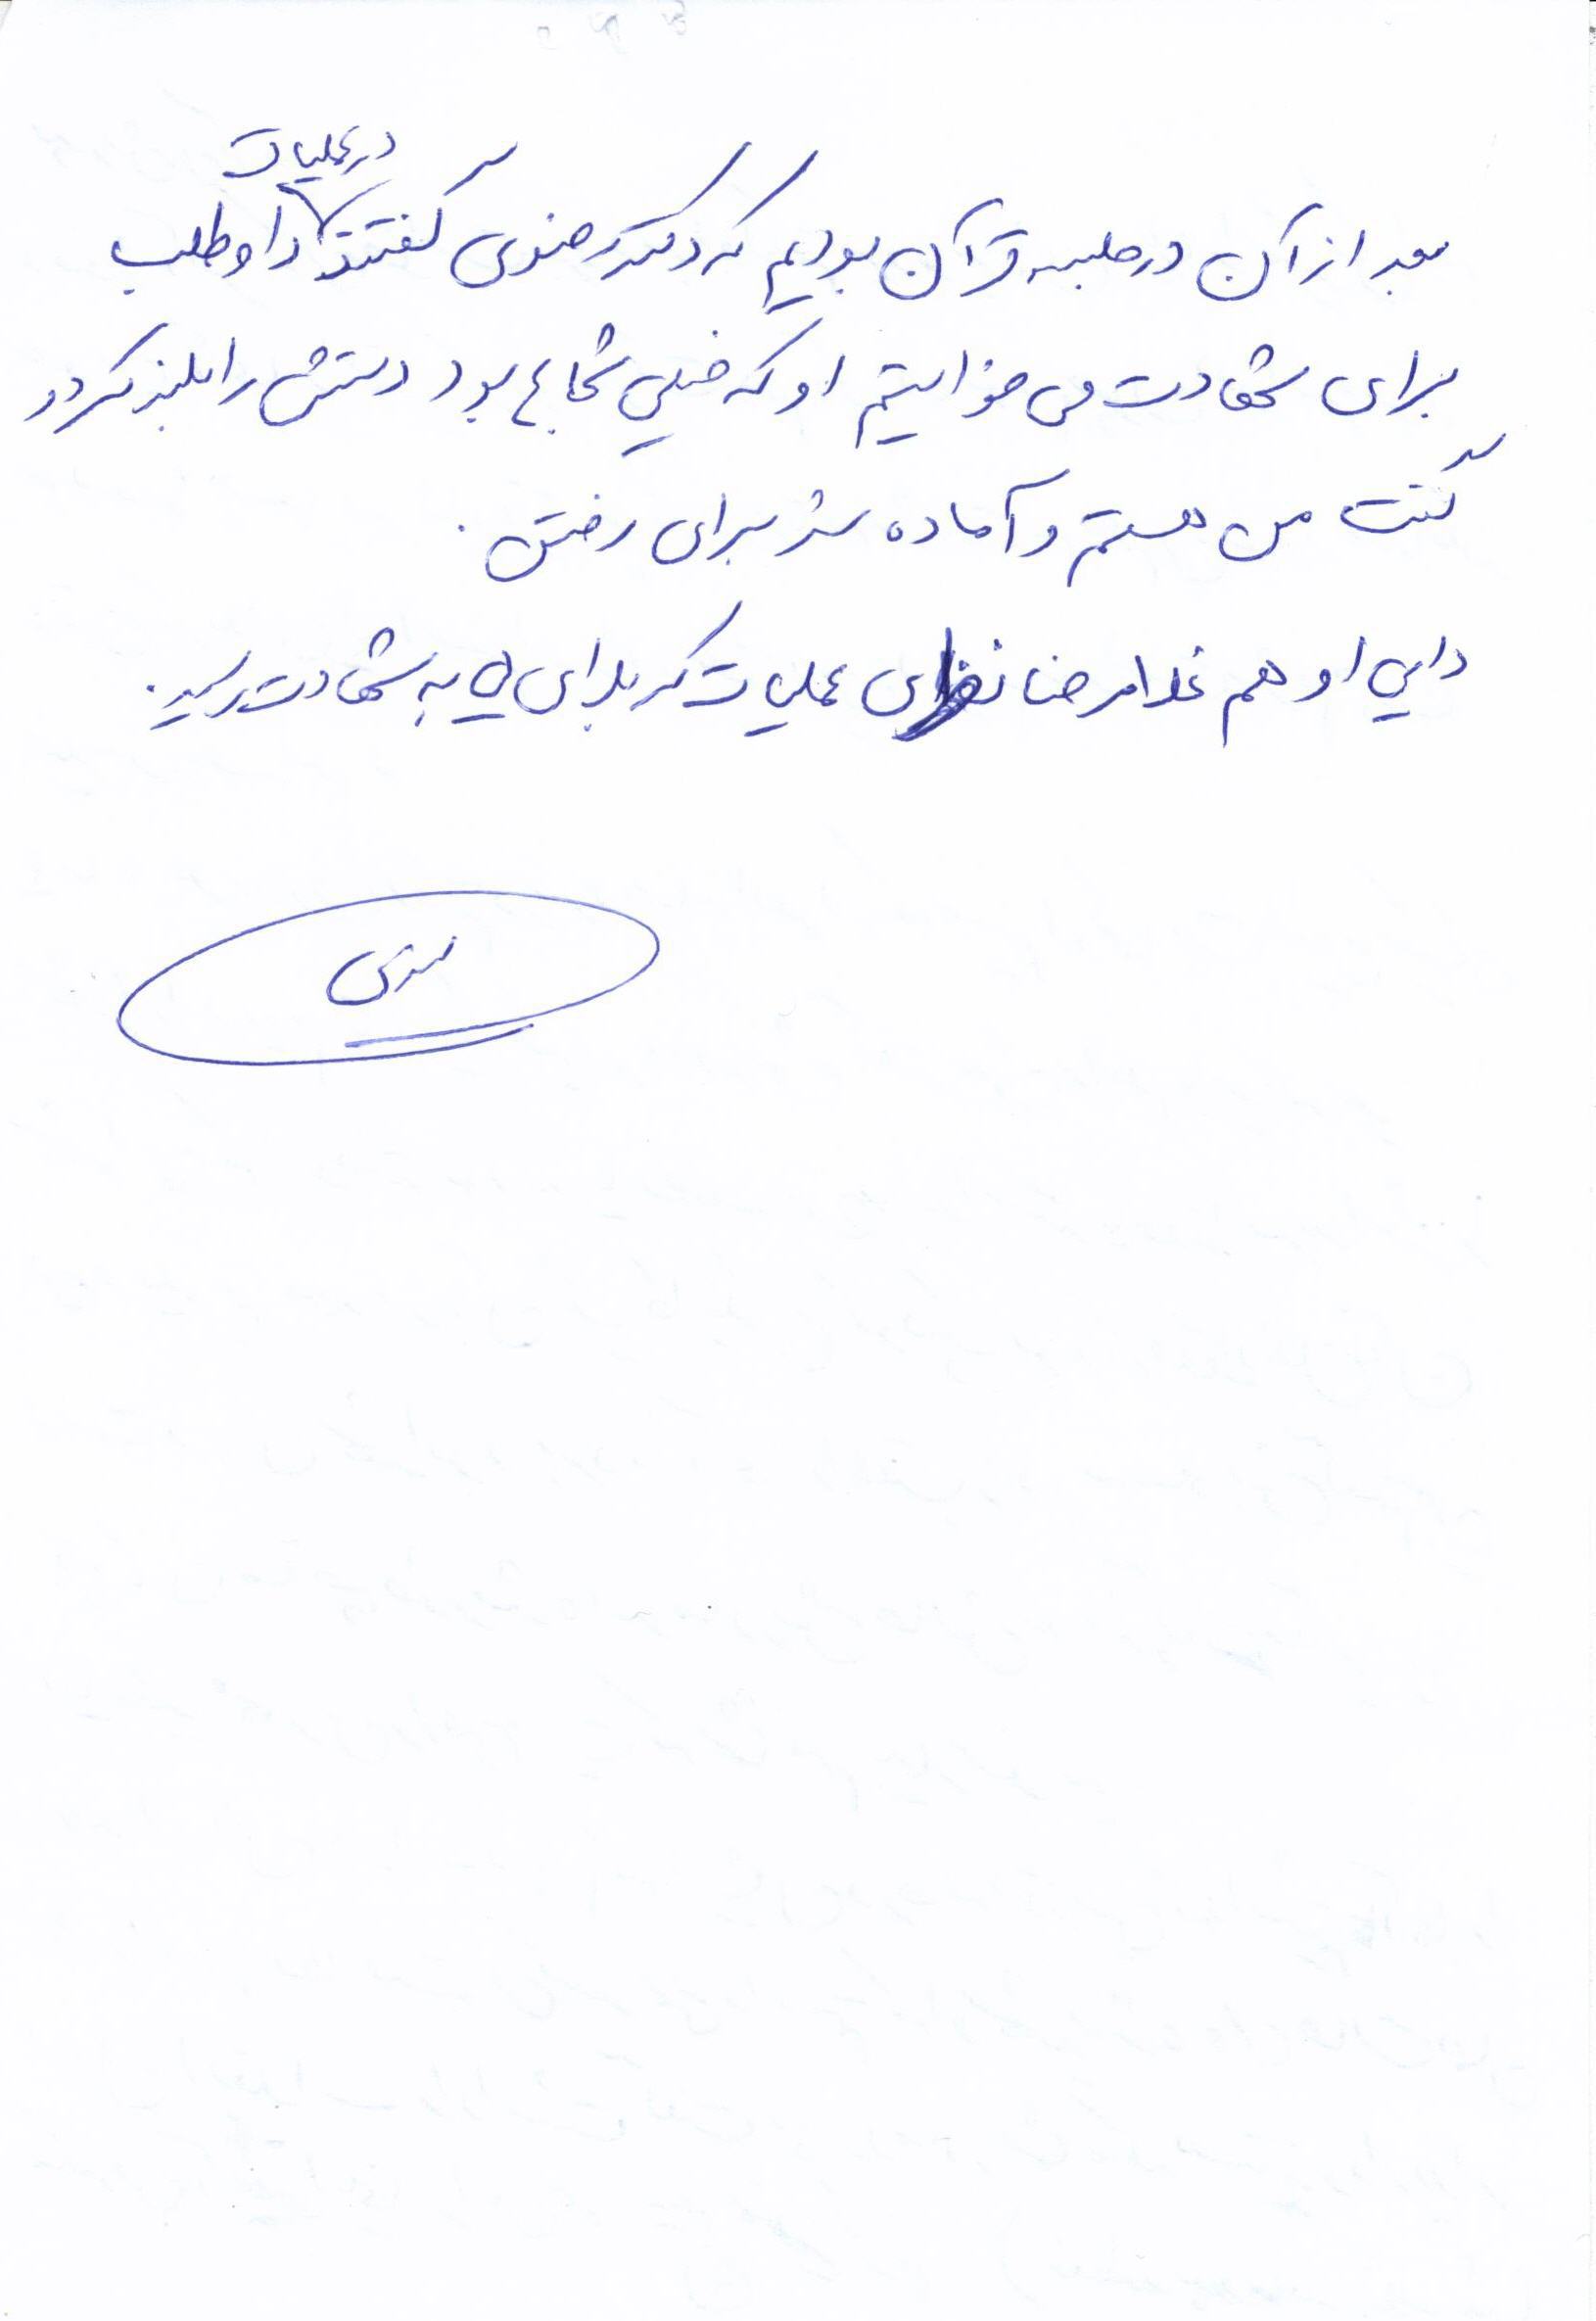 در عملیات
بعد از آن در جلسه قرآن بودیم که دکتر رضوی گفتند داوطلب
برای شهادت می خواهیم او که خیلی شجاع بود دستش را بلند کرد و
گفت من هستم و آماده شد برای رفتن.
دایی او هم غلامرضا عملیات کربلای ۵ به شهادت رسید.